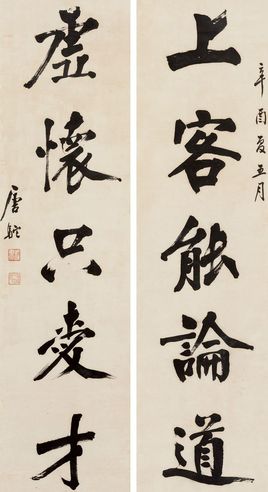 辛酉夏五月
上客能論道
虛懷只愛才
唐駝